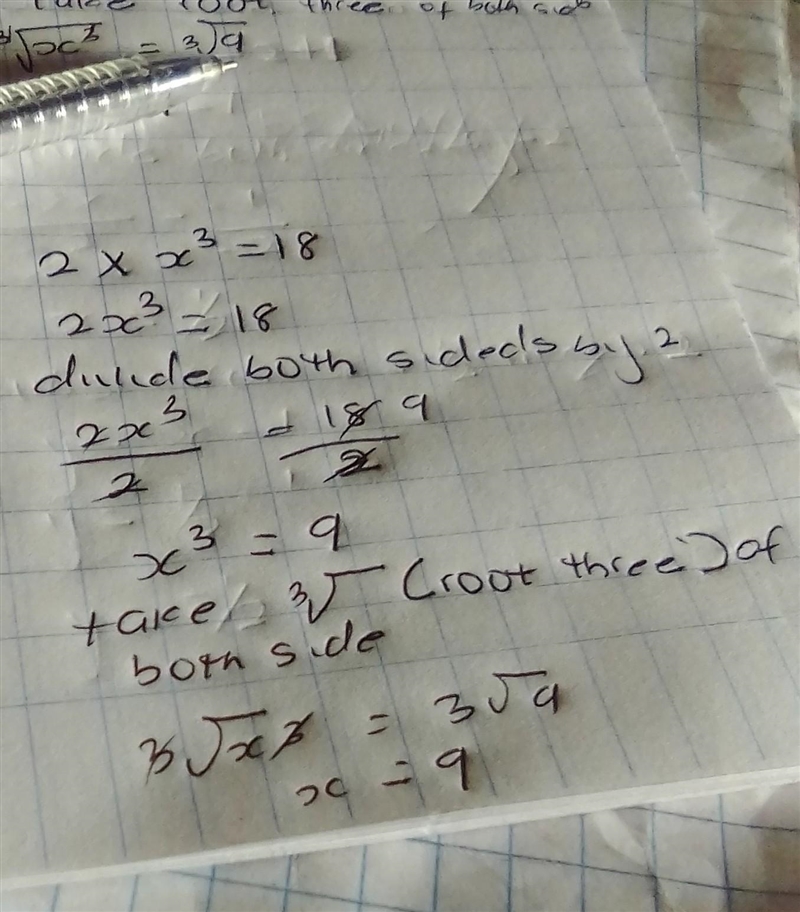 take root three of both side
³√x³ = ³√9
2 × x³ = 18
2x³ = 18
divide both sideds by 2
2x³/2 = 18/2 9
x³ = 9
take ³√ (root three) of
both side
³√x³ = 3√9
x = 9